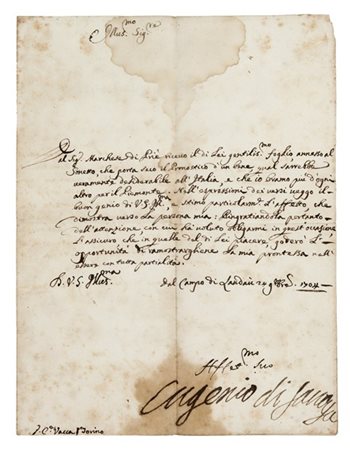 Illus.mo Sig.re
Dal Sig. Marchese di Priè ricevo il di Lei gentiliss.mo foglio annesso al
Sonetto, che porta seco il Pronostico di un bene qual sarebbe
veramente desiderabile all'Italia, e che io bramo più d'ogni
altro per il Piemonte. Nell'espressione dei versi veggo il
buon genio di V.S. Ill.ma, e stimo particolarm.te l'affetto che
dimostra verso la persona mia; Ringratiandola pertanto
dell'attenzione, con cui hà voluto obligarmi in quest'occasione
L'assicuro che in quelle del di Lei piacere, goderò l'
opportunità di rimostrarghene la mia prontezza nell'
essere con tutta partialità.
D. V. S. Illus.ma
Dal Campo di Landau 1704
Affez.mo
Suo
Eugenio di Savoya
Vacca Torino